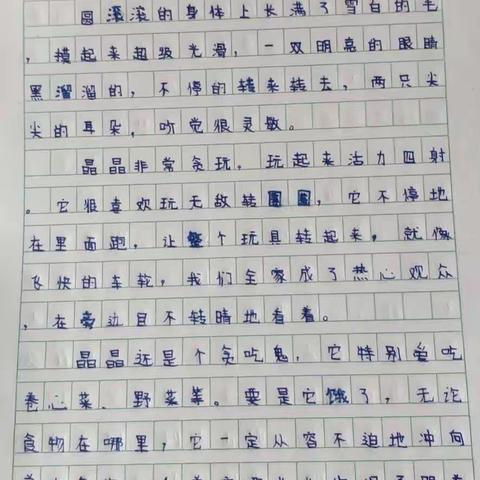 圆滚滚的身体上长满了雪白的毛
，摸起来超级光滑，一双明亮的眼睛
黑溜溜的，不停的转来转去，两只尖
尖的耳朵，听觉很灵敏。
晶晶非常贪玩，玩起来活力四射
。它很喜欢玩无敌转圈圈，它不停地
在里面跑，让整个玩具转起来，就像
飞快的车轮，我们全家成了热心观众
，在旁边目不转睛地看着。
晶晶还是个贪吃鬼，它特别爱吃
卷心菜、野菜等。要是它饿了，无论
食物在哪里，它一定从容不迫地冲向